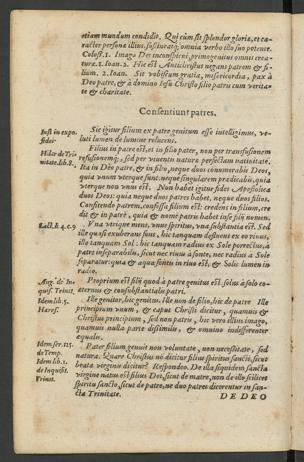 etiam mundum condidit. Qui cùm sit splendor gloriæ, et ca-
racter personæ illius, sustineatq; omnia verbo illo suo potente.
Coloss. 1. Imago Dei inconspicui, primogenitus omnis crea-
turæ. 1. Ioan. 2. Hic est Antichristus negans patrem & fi-
lium. 2. Ioan. Sit vobiscum gratia, misericordia, pax à
Deo patre, & à domino Iesu Christo filio patris cum verita-
te & charitate.
Consentiunt patres.
Iust. in expo.
fidei.
Sic igitur filium ex patre genitum esse intelligimus, ve-
luti lumen de lumine relucens.
Hilar de Tri-
nitate. lib. 8.
Filius in patre est, et in filio pater, non per transfusionem
refusionemq;, sed per viuentis naturæ perfectam natiuitatẽ.
Ita in Deo patre, & in filio, neque duos connumerabis Deos,
quia vnum vterque sunt: neque singularem prædicabis, quia
vterque non vnus est. Non habet igitur fides Apostolica
duos Deos: quia neque duos patres habet, neque duos filios.
Confitendo patrem, confessa filium est: credens in filium, cre
didit & in patrẽ, quia & nomẽ patris habet in se filij nomen.
Lact. li. 4. c. 9
Vna vtrique mens, vnus spiritus, vna substantia est. Sed
ille quasi exuberans fons, hic tanquam defluens ex eo riuus,
ille tanquam Sol: hic tanquam radius ex Sole porrectus, à
patre inseparabilis, sicut nec riuus à fonte, nec radius a Sole
separatur: quia & aqua fontis in riuo est, & Solis lumen in
radio.
Aug. de In-
quis. Trinit
Proprium est filij quod à patre genitus est solus à solo co-
æternus & consubstantialis patri.
Idem lib. 5.
Hæres.
Ille genitor, hic genitus. Ille non de filio, hic de patre Ille
principium vnum, & caput Christi dicitur, quamuis &
Christus principium, sed non patris, hic vero illius imago,
quamuis nulla parte dissimilis, & omnino indifferenter
æqualis.
Idem ser. 125.
de Temp.
Pater filium genuit non voluntate, non necessitate, sed
Idem lib. 1.
de Inquisit.
Trinit.
natura. Quare Christus nõ dicitur filius spiritus sancti, sicut
beatæ virginis dicitur? Respondeo. De illa siquidem sancta
virgine natus est filius Dei, sicut de matre, non de illo scilicet
spiritu sancto, sicut de patre, ne duo patres dicerentur in san-
cta Trinitate.
DE DEO